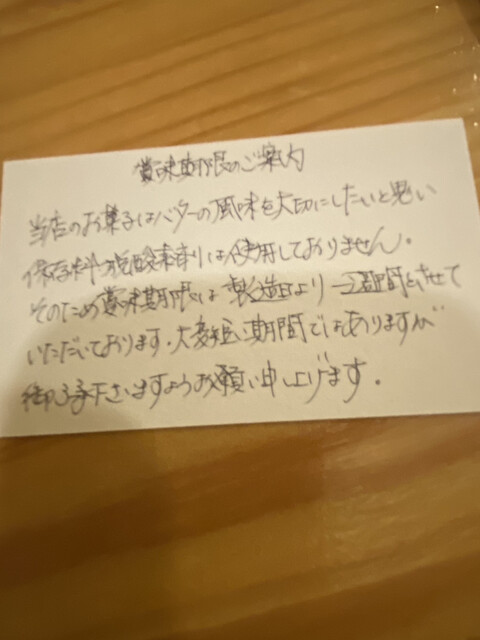 賞味期限のご案内
当店のお菓子はバターの風味を大切にしたいと思い
保存料・脱酸素剤は使用しておりません。
そのため賞味期限は製造日より一週間とさせて
いただいております。大変短い期間ではありますが
御了承下さいますようお願い申し上げます。